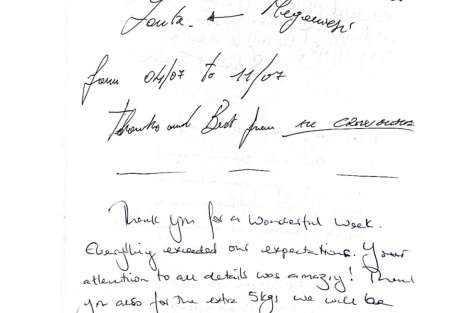 from 04/07 to 11/07
Thanks and Best from
Thank you for a wonderful week.
Everything exceeded our expectations. Your
attention to all details was amazing! Thank
you also for the extra 5kgs we will be